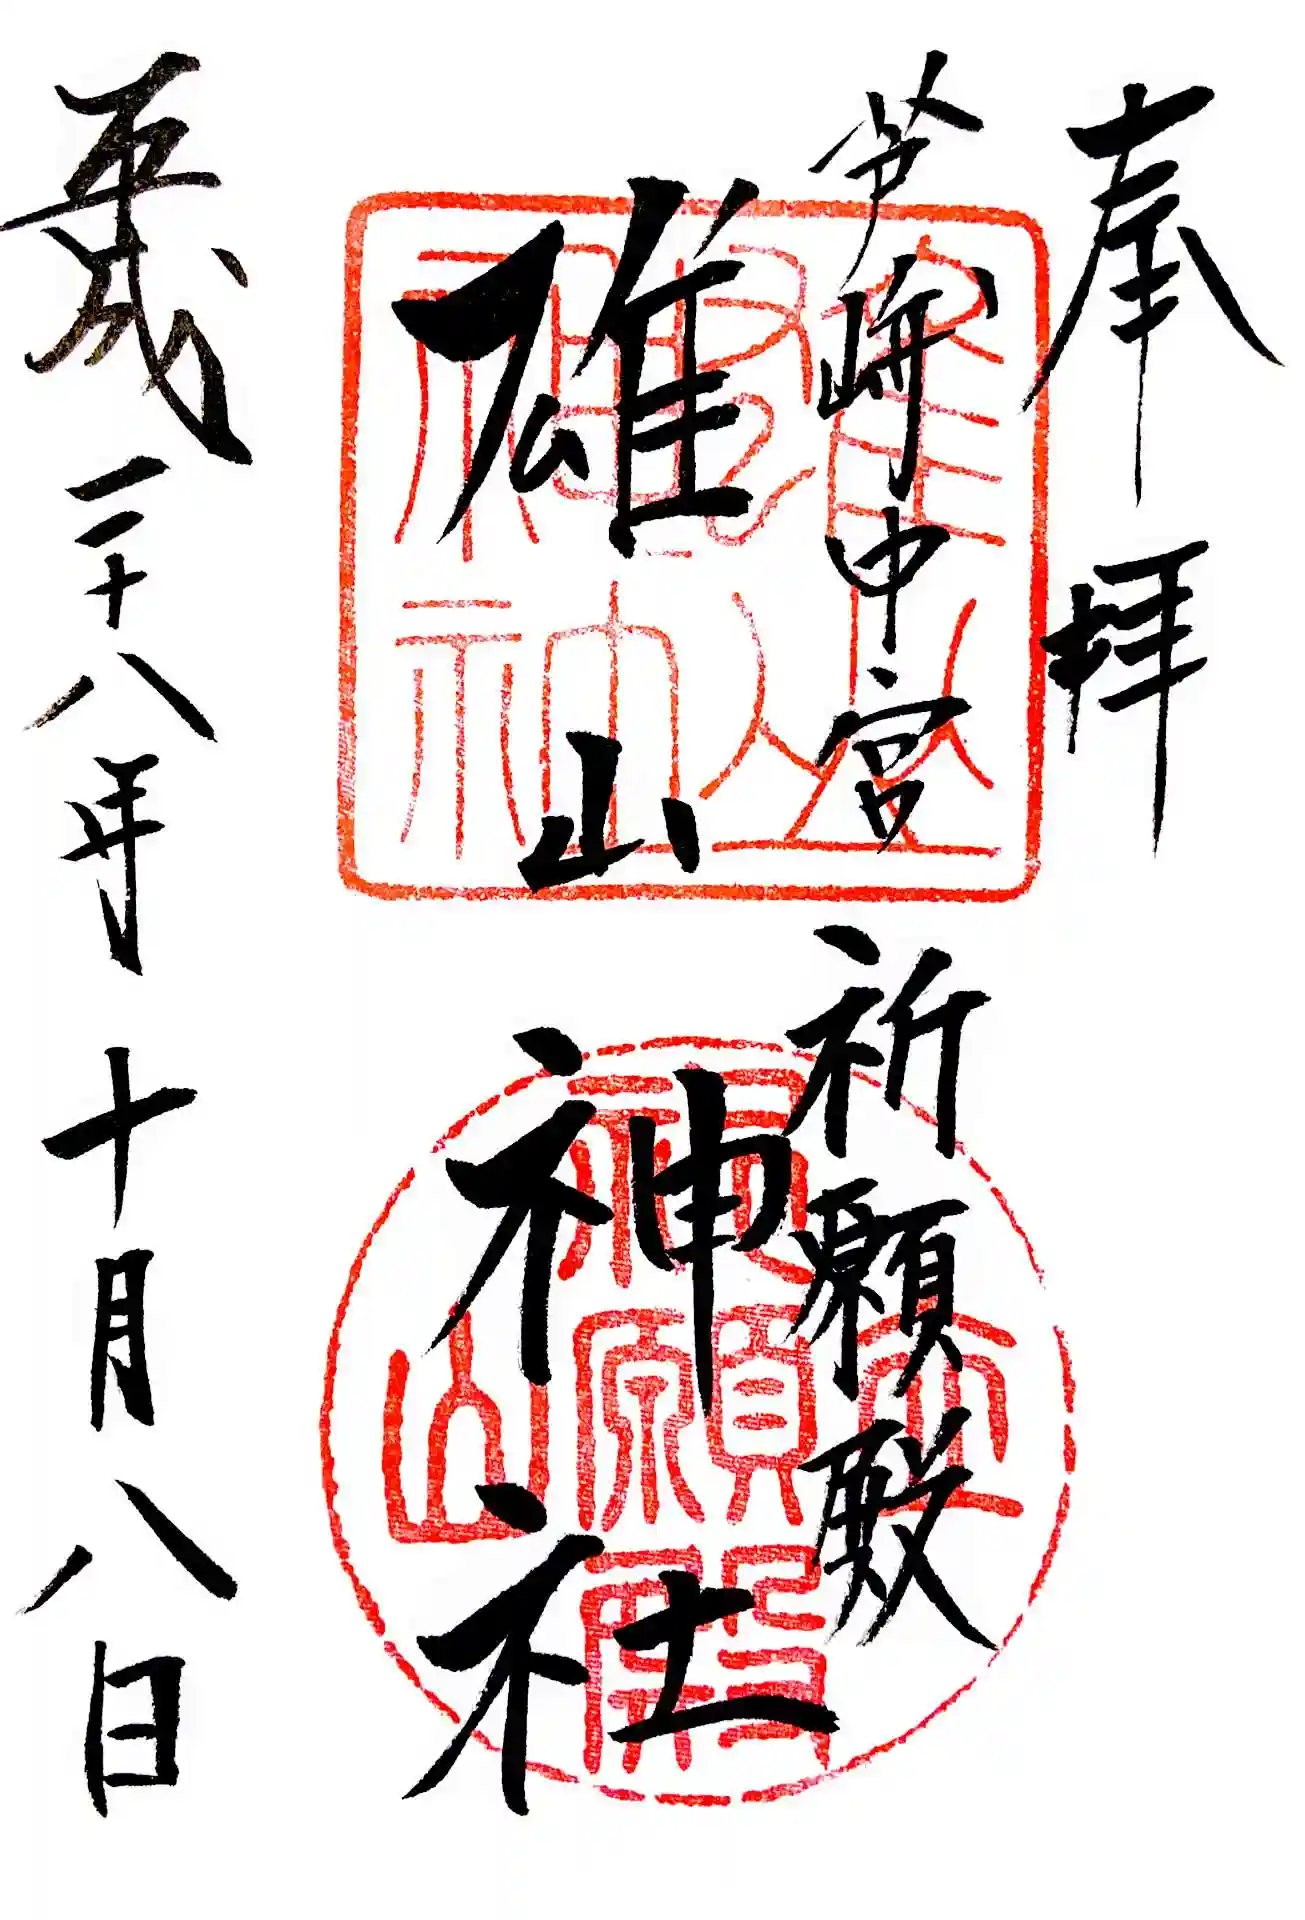 奉拝
芦峅中宮 祈願殿
雄山神社
平成二十八年十月八日
雄山神社神印
立山
祈願殿